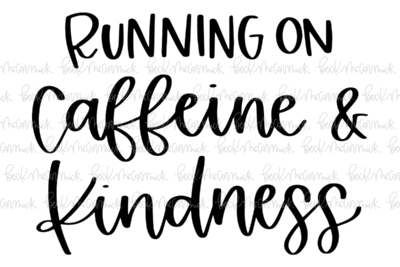 RUNNING ON
Caffeine &
Kindness